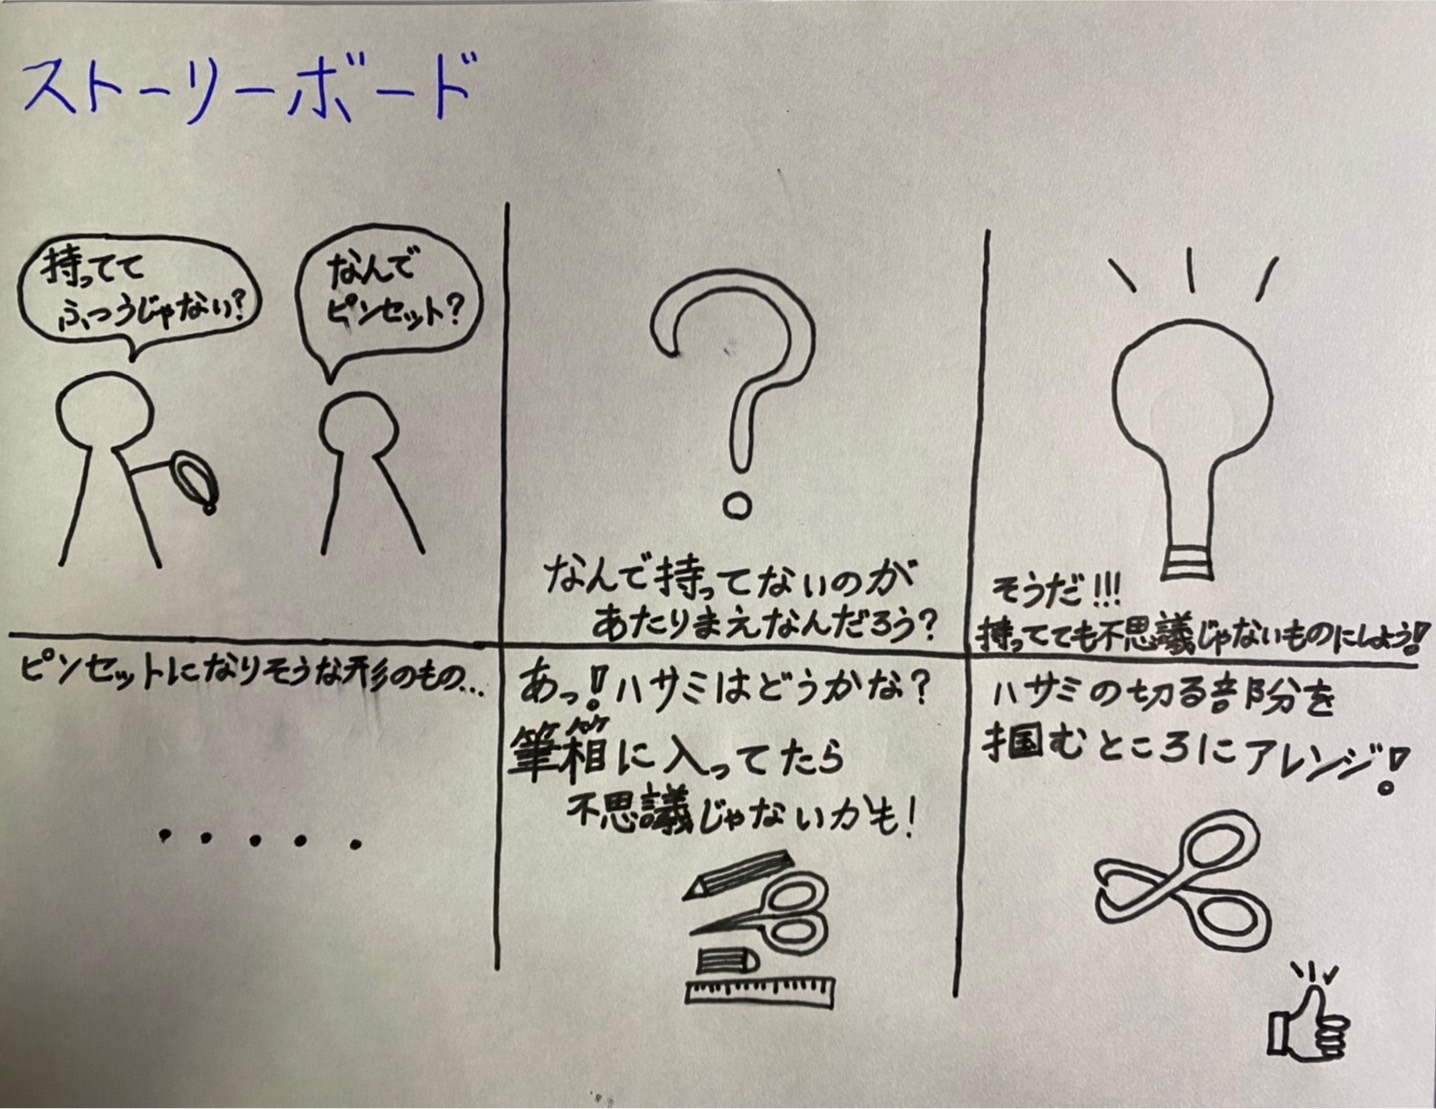 ストーリーボード
持ってて
ふつうじゃない?
なんで
ピンセット?
なんで持ってないのが
あたりまえなんだろう?
そうだ!!!
持ってても不思議じゃないものにしよう!
ピンセットになりそうな形のもの...
・・・・・
あっ!ハサミはどうかな?
筆箱に入ってたら
不思議じゃないかも!
ハサミの切る部分を
掴むところにアレンジ!